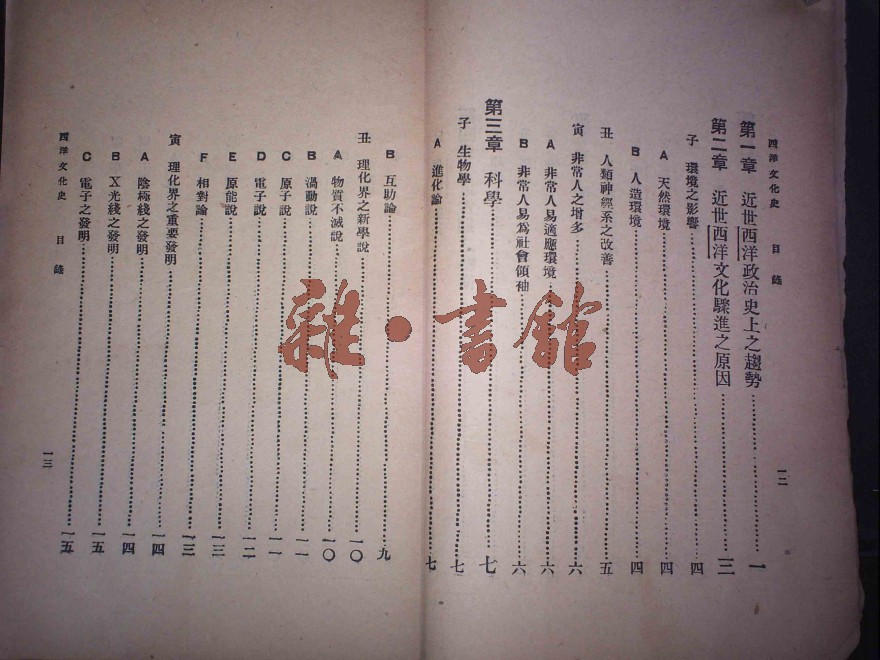 西洋文化史 目錄 一二
第一章 近世西洋政治史上之趨勢……一
第二章 近世西洋文化驟進之原因……三
子 環境之影響……四
A 天然環境……四
B 人造環境……四
丑 人類神經系之改善……五
寅 非常人之增多……六
A 非常人易適應環境……六
B 非常人易為社會領袖……六
第三章 科學……七
子 生物學……七
A 進化論……七
B 互助論……九
丑 理化界之新學說……一〇
A 物質不滅說……一〇
B 渦動說……一一
C 原子說……一一
D 電子說……一二
E 原能說……一三
F 相對論……一三
寅 理化界之重要發明……一四
A 陰極綫之發明……一四
B X光綫之發明……一五
C 電子之發明……一五
西洋文化史 目錄 一三
雜·書館